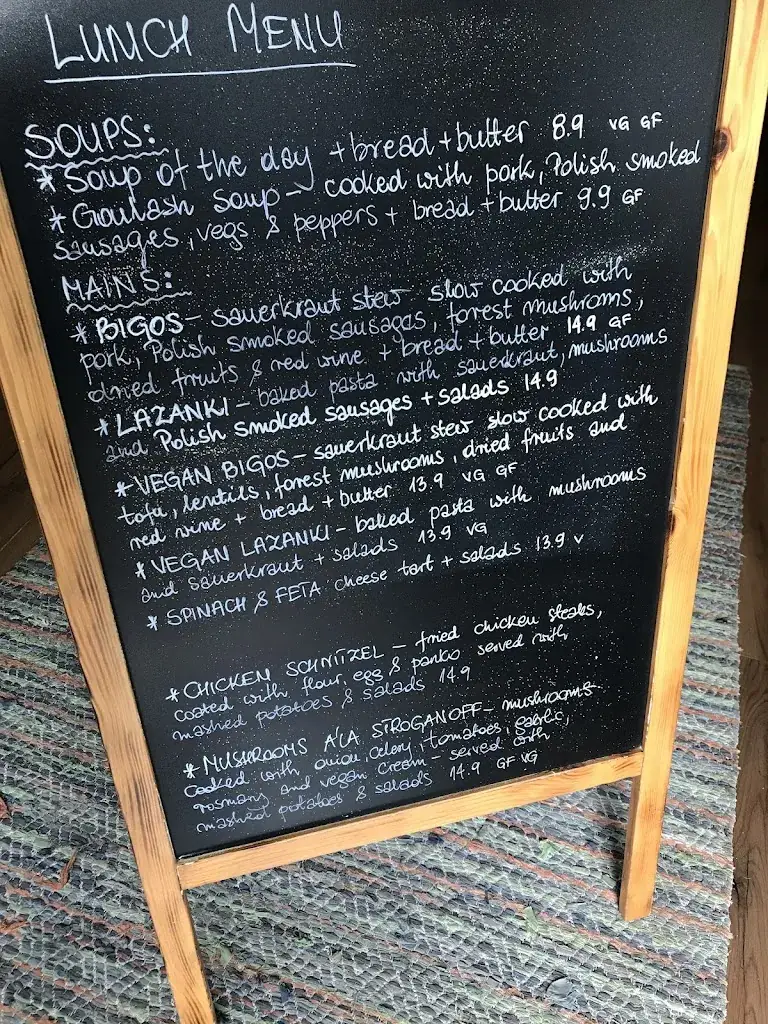 LUNCH MENU
SOUPS:
* Soup of the day + bread + butter 8.9 VG GF
* Goulash soup - cooked with pork, Polish smoked
sausages, vegs & peppers + bread + butter 9.9 GF
MAINS:
* BIGOS - sauerkraut stew slow cooked with
pork, Polish smoked sausages, forest mushrooms,
dried fruits & red wine + bread + butter 14.9 GF
* LAZANKI - baked pasta with sauerkraut, mushrooms
and Polish smoked sausages + salads 14.9
* VEGAN BIGOS - sauerkraut stew slow cooked with
tofu, lentils, forest mushrooms, dried fruits and
red wine + bread + butter 13.9 VG GF
* VEGAN LAZANKI - baked pasta with mushrooms
and sauerkraut + salads 13.9 VG
* SPINACH & FETA cheese tart + salads 13.9 V
* CHICKEN SCHNITZEL - fried chicken steaks,
coated with flour, egg & panko served with
mashed potatoes & salads 14.9
* MUSHROOMS A'LA STROGANOFF - mushrooms
cooked with onion, celery, tomatoes, garlic,
rosmary and vegan cream - served with
mashed potatoes & salads 14.9 GF VG